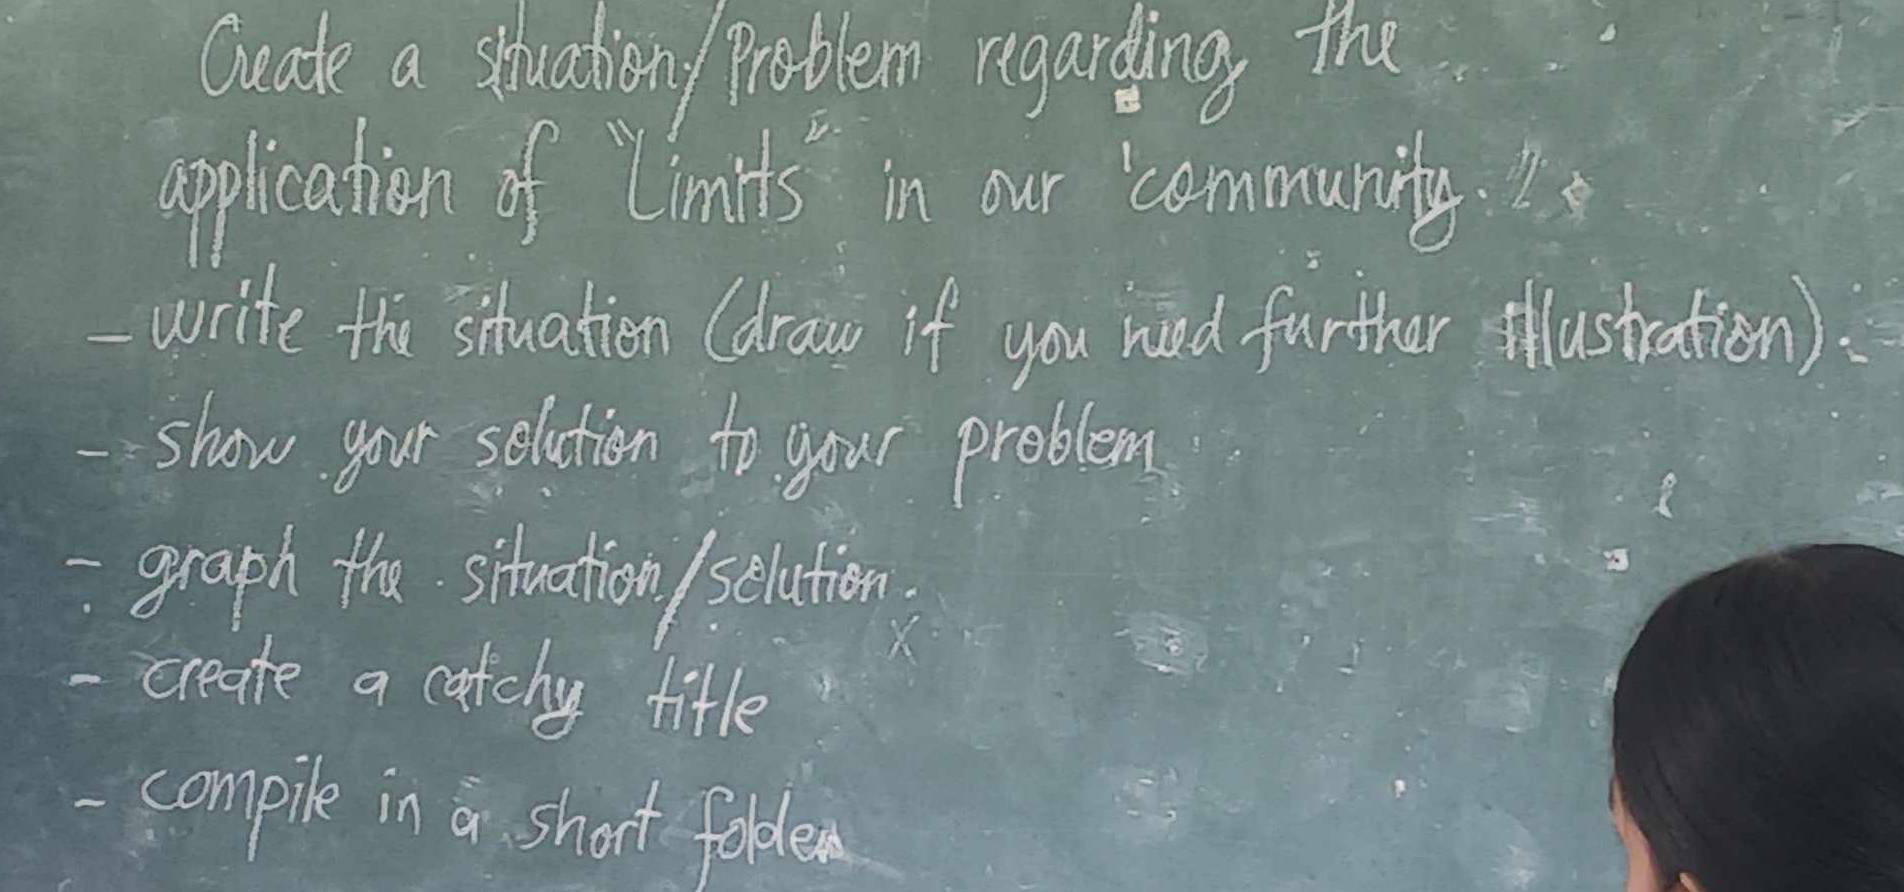 Create a situation/Problem regarding the
application of "Limits" in our 'community."
- write the situation (draw if you need further illustration).
- show your solution to your problem
- graph the situation/solution.
x
- create a catchy title
- compile in a short folder